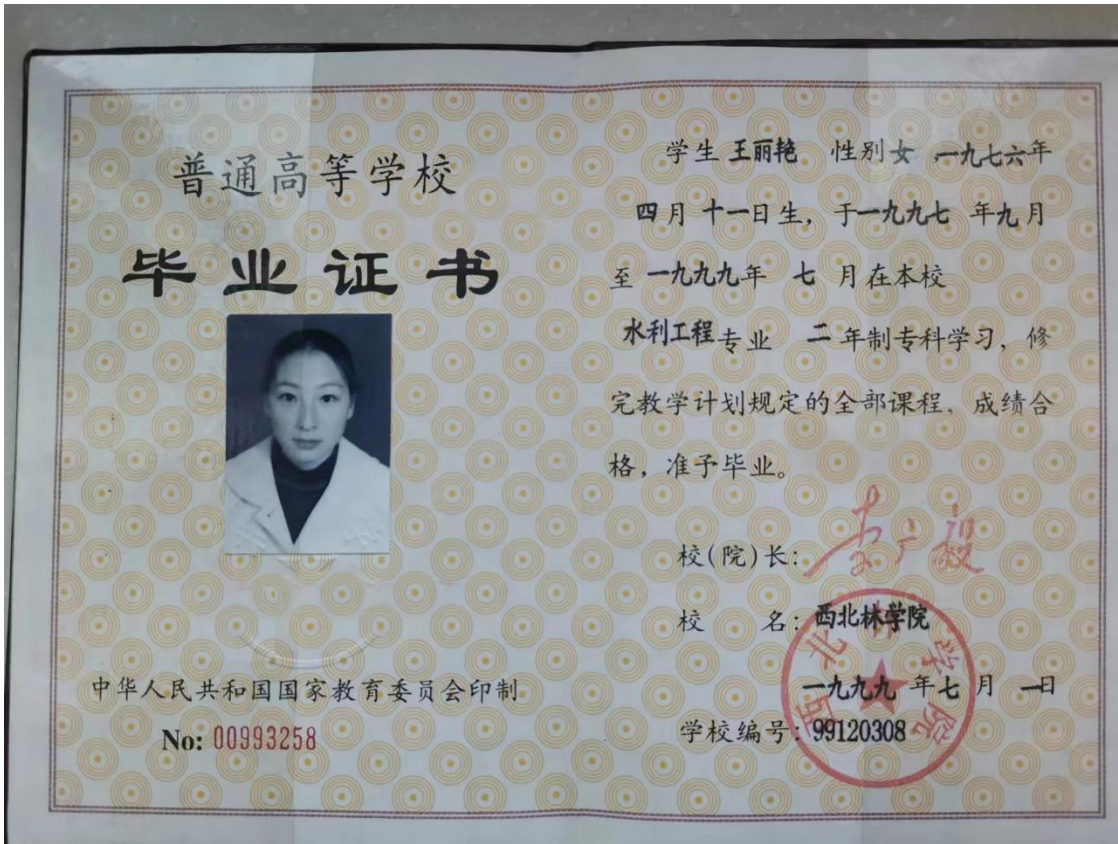 普通高等学校
毕业证书
中华人民共和国国家教育委员会印制
No: 00993258
学生 王丽艳 性别 女 ,一九七六年
四月 十一日生, 于一九九七 年九月
至 一九九九年 七 月在本校
水利工程专业 二 年制专科学习, 修
完教学计划规定的全部课程, 成绩合
格, 准予毕业。
校(院)长:
校 名: 西北林学院
一九九九 年七月 一日
学校编号: 99120308
西北林学院